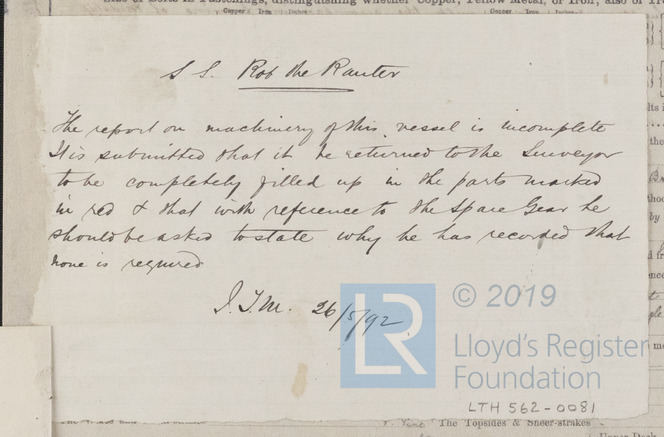 Size of Bolts in Fastenings, distinguishing whether Copper, Yellow Metal, or Iron, also of
Copper Iron Inches Copper Iron Inches
S S. Rob the Ranter
The report on machinery of this vessel is incomplete
It is submitted that it be returned to the Surveyor
to be completely filled up in the parts marked
in red & that with reference to the Spare Gear he
should be asked to state why he has recorded that
none is required
26/5/92
LR
© 2019
Lloyd's Register
Foundation
LTH 562-0081
The Topsides & Sheer-strakes
Upper Deck